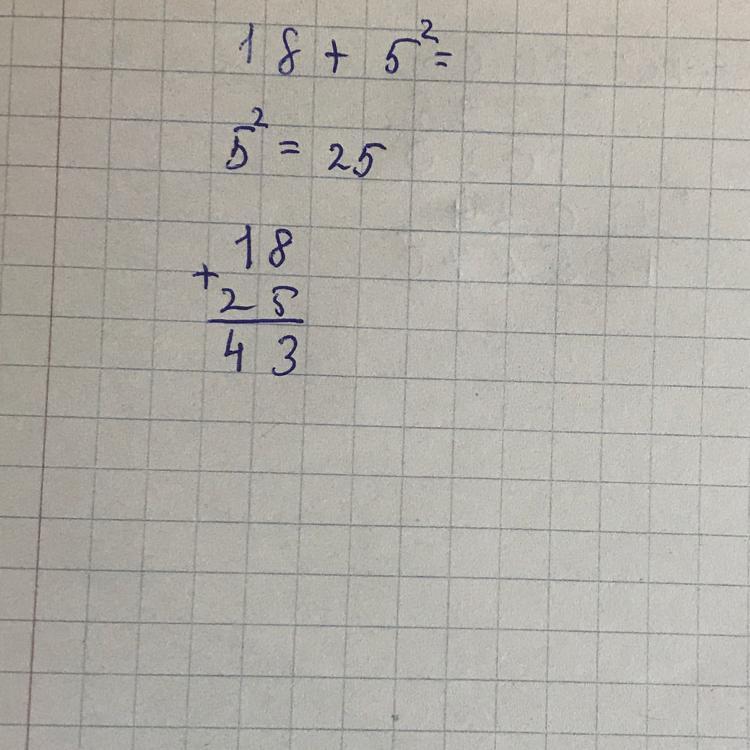 18 + 5²=
5² = 25
18
+
25
43